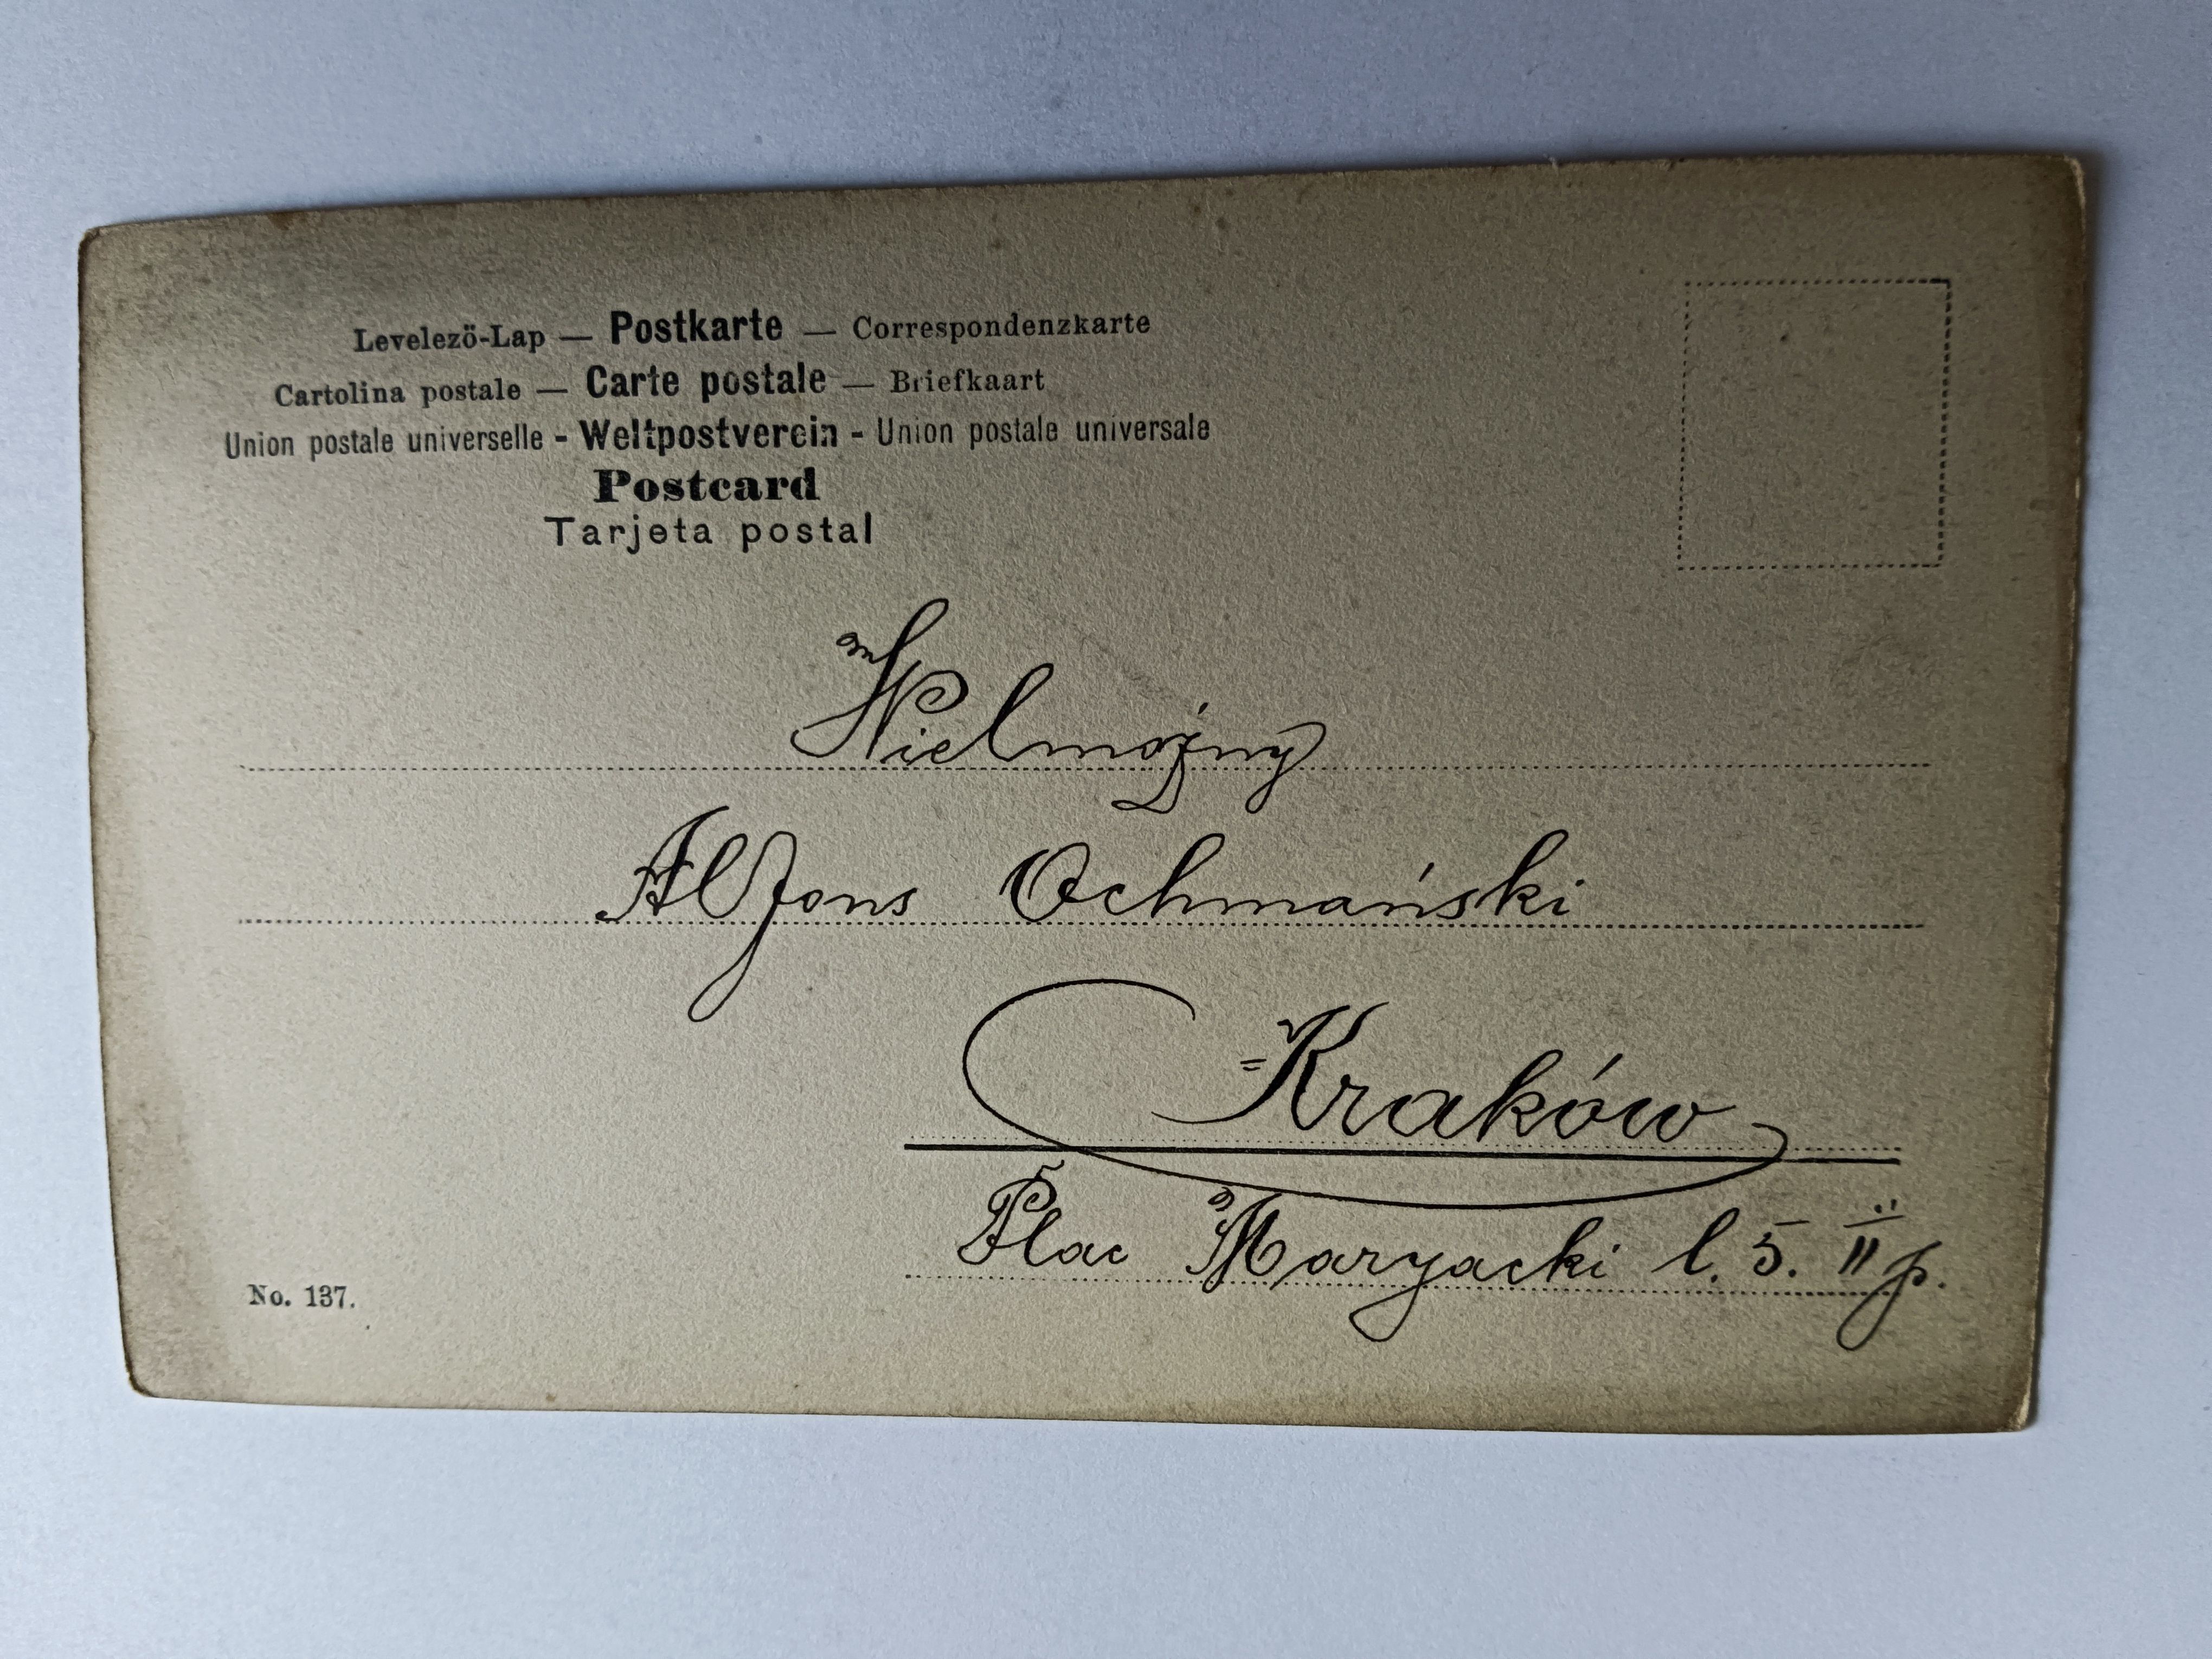 Levelezö-Lap — Postkarte — Correspondenzkarte
Cartolina postale — Carte postale — Briefkaart
Union postale universelle - Weltpostverein - Union postale universale
Postcard
Tarjeta postal
Wielmożny
Alfons Ochmański
=Kraków
Plac Maryacki l. 5. II p.
No. 137.